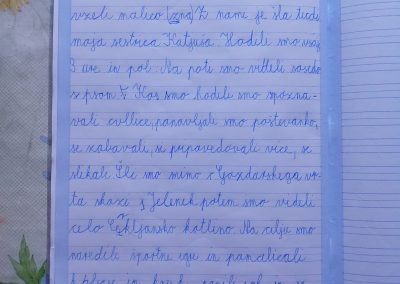 vzeli malico (zna) Z nami je šla tudi
moja sestrica Katjuša. Hodili smo vsaj
3 ure in pol. Na poti smo videli sosedo
s psom Ko smo hodili smo spozna-
vali cvllice, ponavljali smo poštevanko,
se zabavali, si pripovedovali vice, se
slikali. Šli smo mimo Gozdarskega vr-
ta skozi Jelenek potem smo videli
celo Črkljansko kotlino. Na cilju smo
naredili športne igre in ponalicali